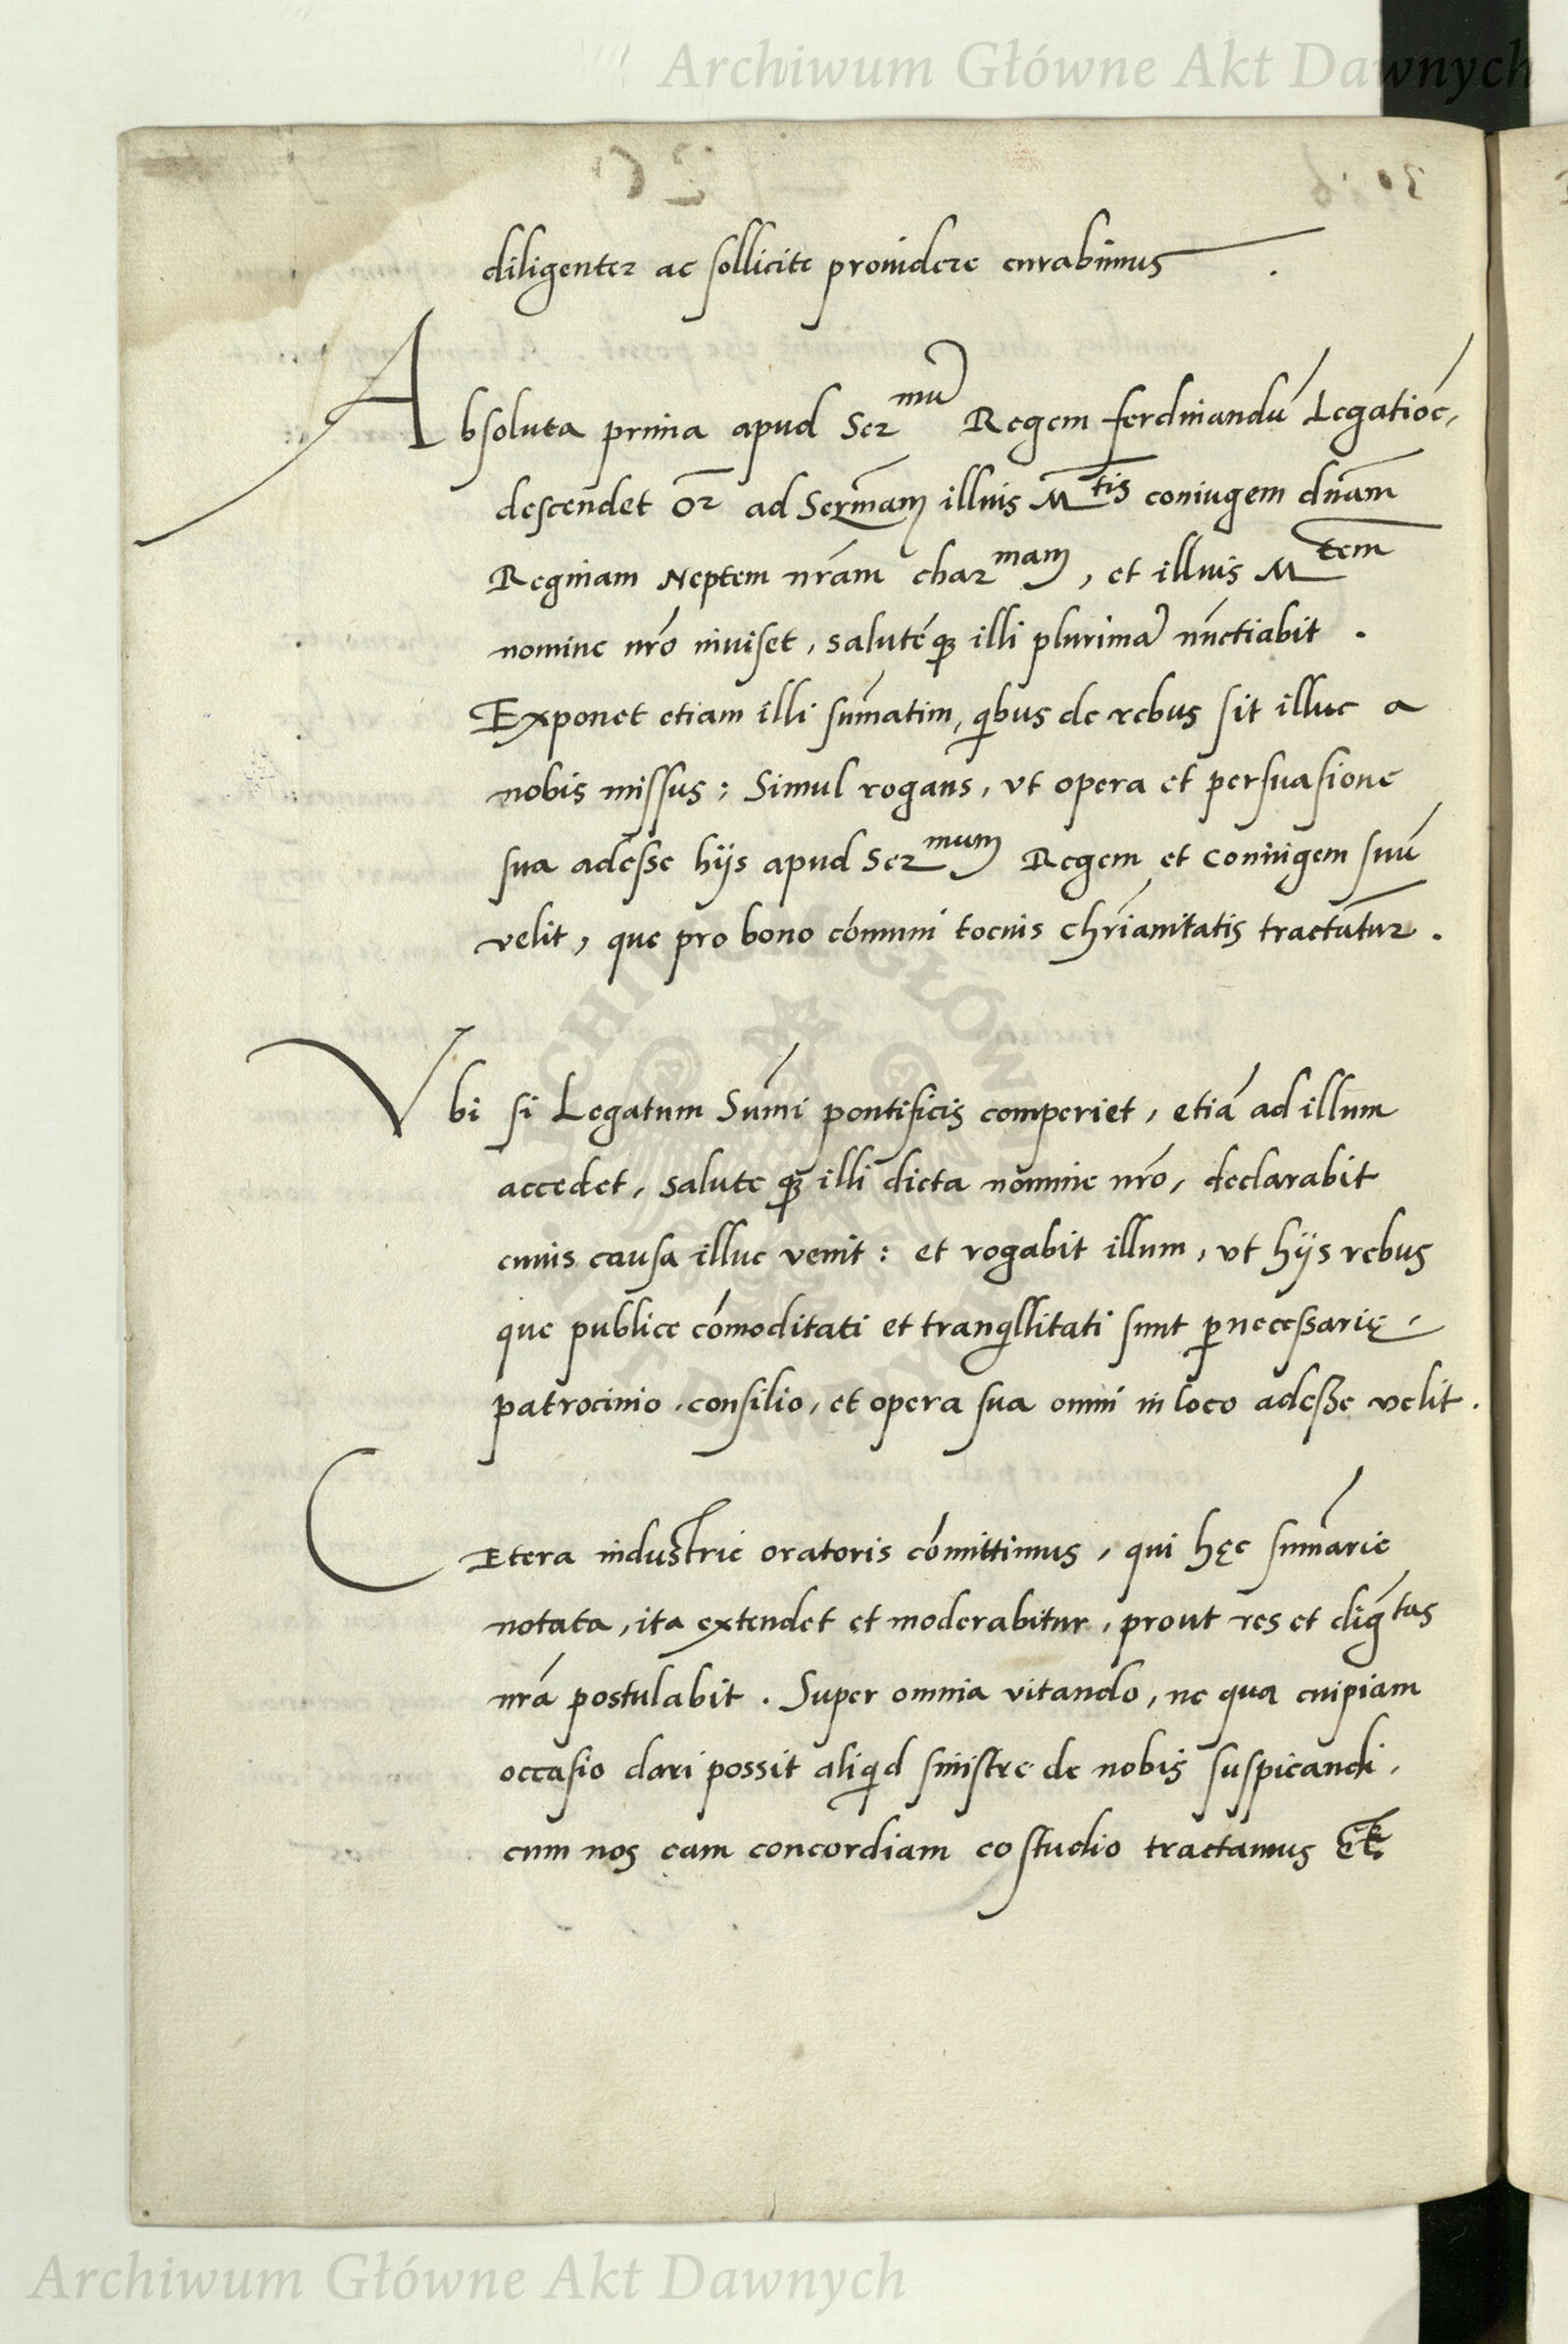 Archiwum Główne Akt Dawnych
diligenter ac sollicite prouidere curabimus .
Absoluta prima apud Ser^mū Regem ferdinandū Legatioē,
descendet Or̄ ad Serm̄am illius M^tis coniugem dn̄am
Reginam Neptem nr̄am char^mam, et illius M^tem
nomine nrō inuiset, salutēq; illi plurimā nūctiabit .
Exponet etiam illi sum̄atim, qibus de rebus sit illuc a
nobis missus: Simul rogans, vt opera et persuasione
sua adesse hijs apud Ser^mum Regem et Coniugem suū
velit, que pro bono cōmuni tocius chrīanitatis tractātur .
Vbi si Legatum Sum̄i pontificis comperiet, etiā ad illum
accedet, salute q; illi dicta nomine nrō, declarabit
cuius causa illuc venit: et rogabit illum, vt hijs rebus
que publice cōmoditati et tranqillitati sunt ꝑnecessarię,
patrocinio, consilio, et opera sua omni in loco adesse velit .
CEtera industrie oratoris cōmittimus, qui hęc sum̄arie
notata, ita extendet et moderabitur, prout res et diḡ^tas
nrā postulabit . Super omnia vitando, ne qua cuipiam
occasio dari possit aliqid sinistre de nobis suspicandi,
cum nos eam concordiam eo studio tractamus etc̄
Archiwum Główne Akt Dawnych